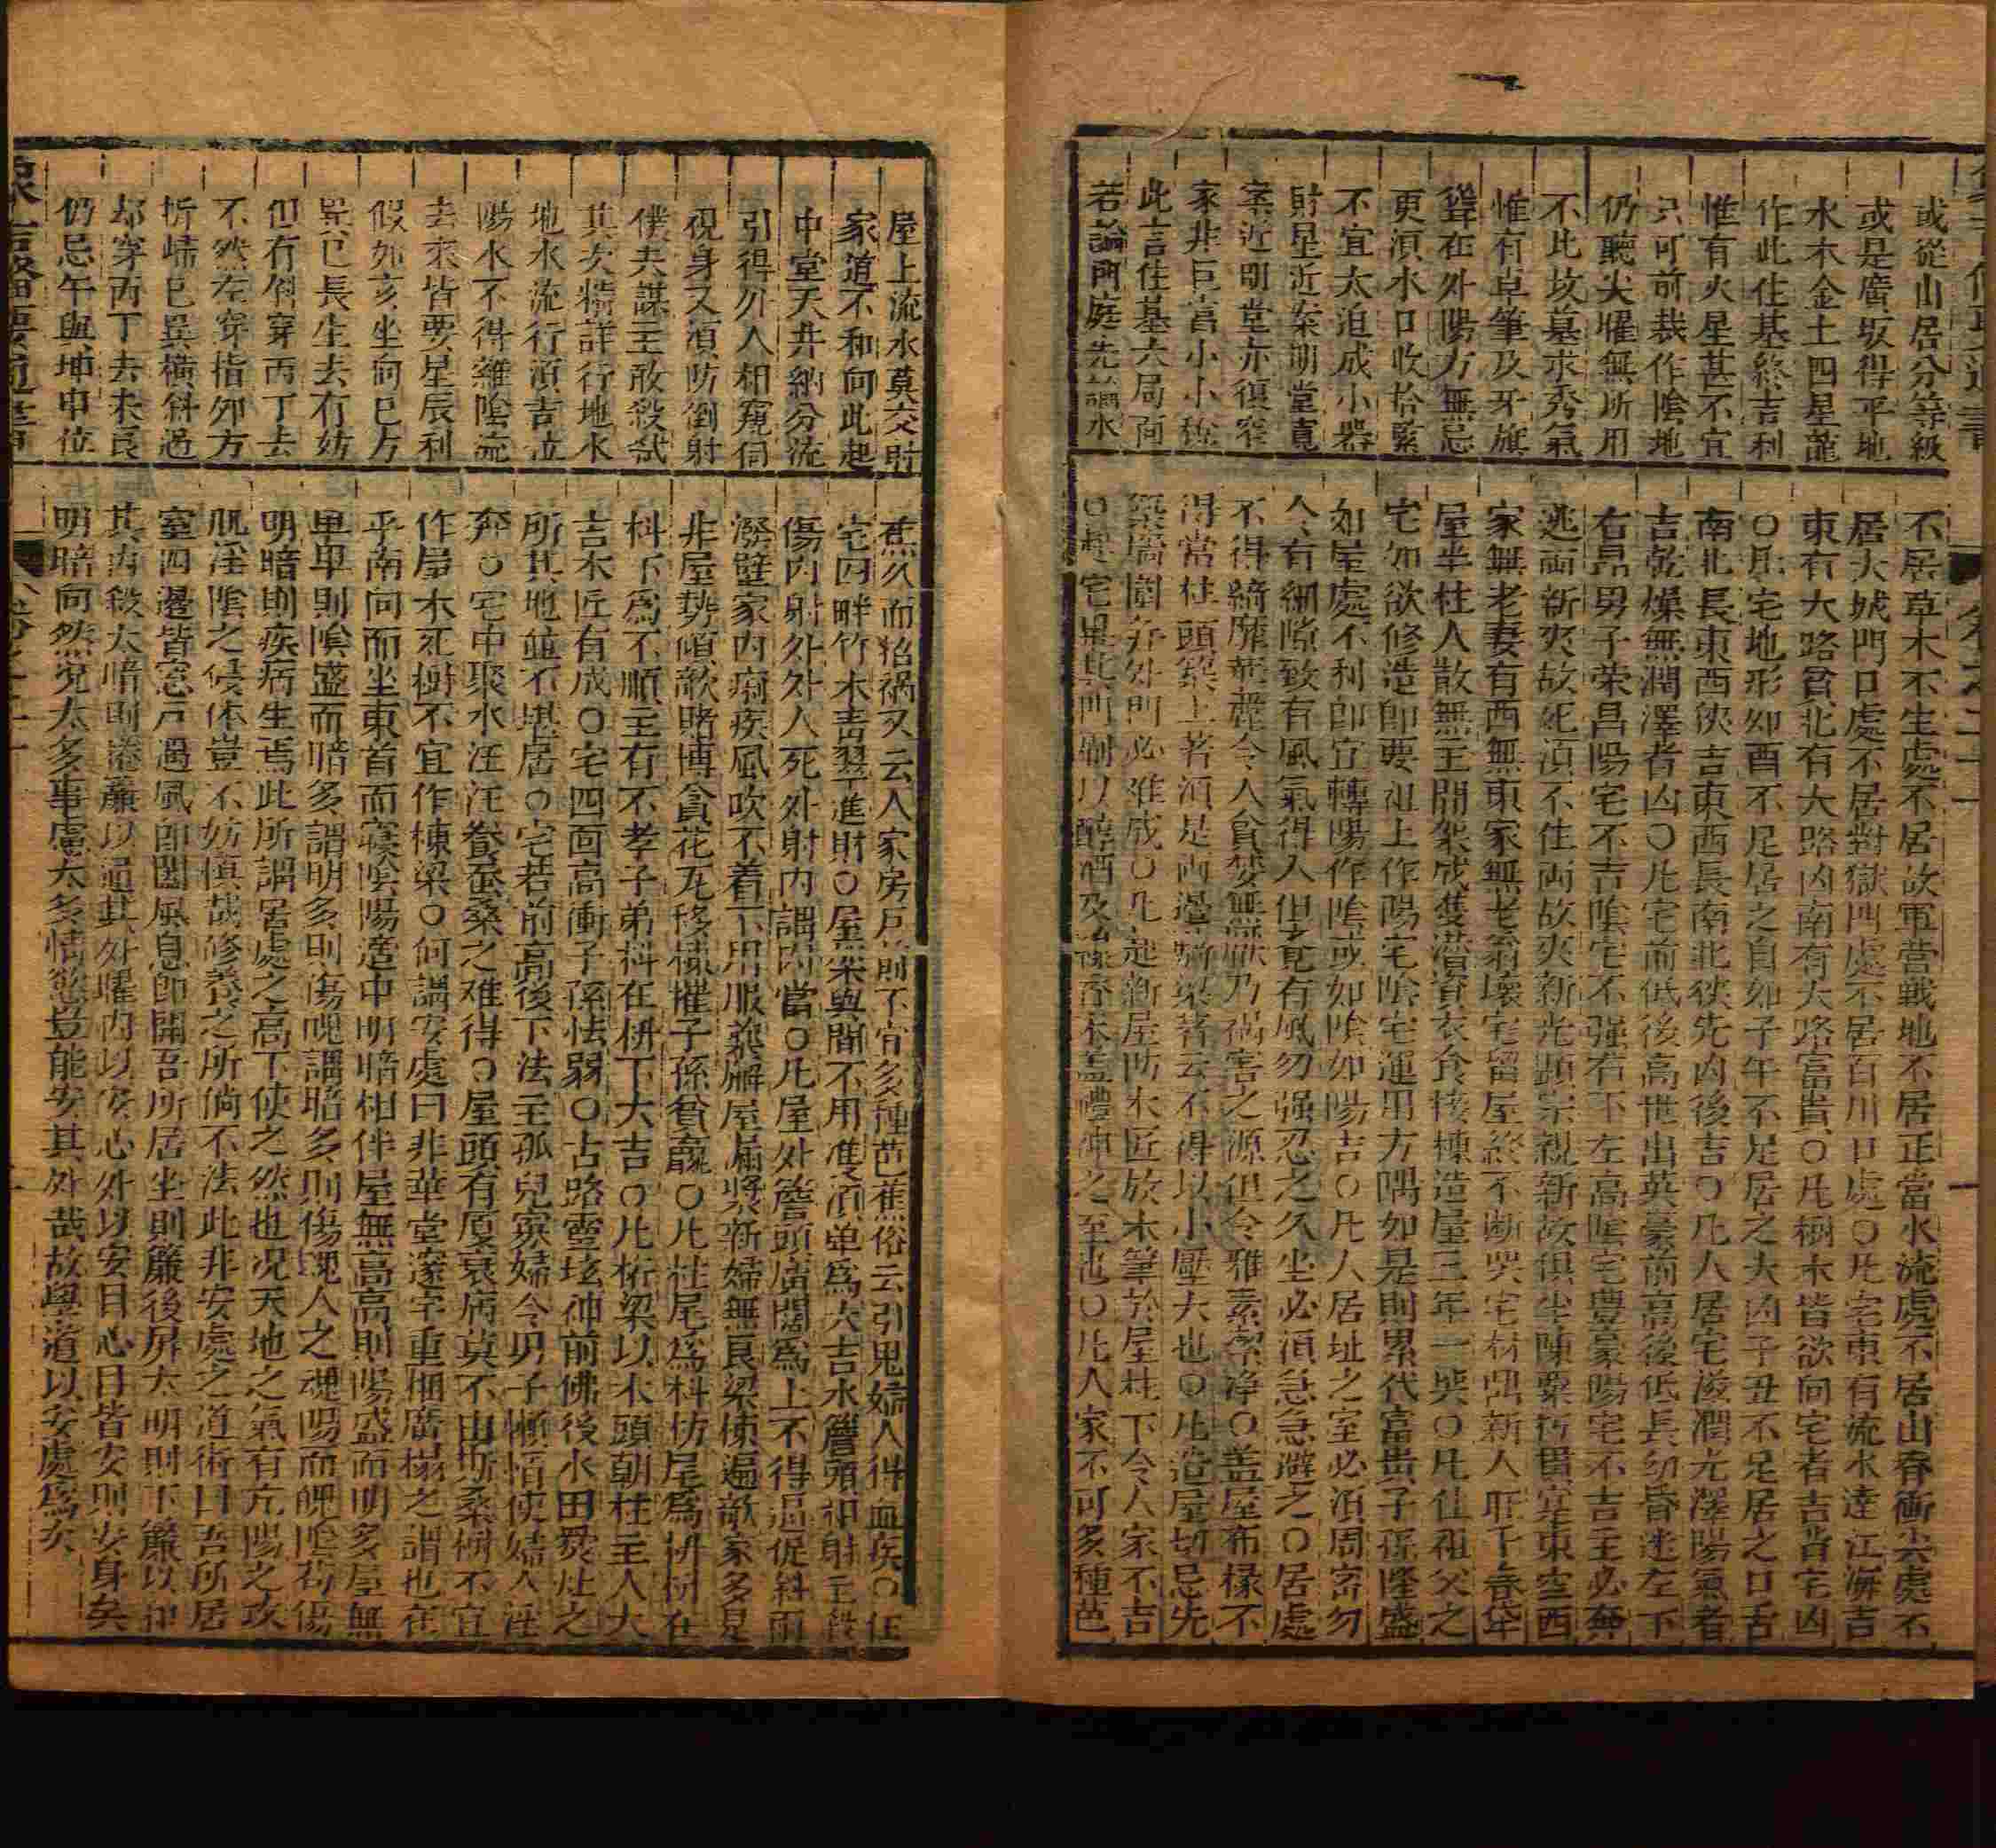 或從山居分等級
或是廣坂得平地
水木金土四星龍
作此住基終吉利
惟有火星甚不宜
只可前裁作陰地
仍聽尖曜無所用
不比坟墓求秀氣
惟有卓筆及牙旗
聳在外陽方無忌
更湏水口收拾緊
不宜太迫成小器
財星近案明堂寬
案近明堂亦復窄
家非巨富小小
此言住基大局面
若論門庭先論水
不居草木不生處不居故軍營戰地不居正當水流處不居山脊衝尖處不
居大城門口處不居對獄門處不居百川口處○凡宅東有流水達江海吉
東有大路貧北有大路凶南有大路富貴○凡樹木皆欲向宅者吉背宅凶
○凡宅地形卯酉不足居之自如子午不足居之大凶子丑不足居之口舌
南北長東西狹吉東西長南北狹先凶後吉○凡人居宅滋潤光澤陽氣者
吉乾燥無潤澤者凶○凡宅前低後高世出英豪前高後低長幼昏迷左下
右昂男子荣昌陽宅不吉陰宅不强右下左高陰宅豐豪陽宅不吉主必奔
逃兩新夾故死湏不住兩故夾新光顯宗親新故俱坐陳粟朽貫宅東空西
家無老妻有西無東家無老翁壞宅留屋終不断哭宅材鼎新人旺千春
屋半柱人散無主間架成隻潜資衣食接棟造屋三年一哭○凡住祖父之
宅如欲修造即要祖上作陽宅陰宅運用方隅如是則累代富貴子孫隆盛
如屋處不利即宜轉陽作陰或如陰如陽吉○凡人居址之室必湏周宻勿
令有細隙致有風氣得入但覔有風勿强忍之久坐必湏急急避之○居處
不得綺靡華麗令人貪婪無厭乃禍害之源但令雅素潔净○盖屋布椽不
得當柱頭梁上著湏是兩邊騎梁著云不得以小壓大也○凡造屋切忌先
築墻圍并外門必难成○凡起新屋防木匠放木筆於屋柱下令人家不吉
家不可多種芭
屋上流水莫交射
家道不和向此起
中堂天井納分流
引得外人相窺伺
視身又湏防倒射
僕夫謀主敢殺弑
其次精詳行地水
地水流行湏吉位
陽水不得雜陰流
去來皆要星辰利
假如亥坐向巳方
巽巳長生去有妨
但有倒穿丙丁去
不然左穿指卯方
折歸巳巽横斜過
却穿丙丁去未艮
仍忌午與坤申位
蕉久而招禍又云人家房戶前不宜多種芭蕉俗云引鬼婦人得血疾○住
宅四畔竹木青翠進財○屋架與間不用雙湏单為大吉水簷頭相射主殺
傷内射外外人死外射内謂内當○凡屋外簷頭廣闊為上不得逼促斜雨
潑壁家内痢疾風吹不着不用服藥癬屋漏漿新婦無良梁棟遍敧家多是
非屋势傾敧賭博貪花瓦移樣摧子孫貧龍○凡柱尾為料枋尾為枅枅在
枓下為不順主有不孝子弟枓在枅下大吉○凡桁梁以木頭朝柱主人大
吉木匠有成○宅四面高衝子孫怯弱○古路靈坛神前佛後水田爨灶之
所其地並不堪居○宅若前高後下法主孤兒寡婦令男子懶惰使婦人淫
奔○宅中聚水汪汪養蚕桑之难得○屋頭有厦衰病莫不由斯桑樹不宜
作屋木死樹不宜作棟梁○何謂安處曰非華堂邃宇重裀廣榻之謂也在
乎南向而坐東首而寢陰陽適中明暗相伴屋無高高則陽盛而明多屋無
卑卑則陰盛而暗多謂明多則傷魄謂暗多則傷魂人之魂陽而魄陰苟傷
明暗則疾病生焉此所謂居處之高下使之然也况天地之氣有亢陽之攻
肌淫陰之侵体豈不妨慎哉修養之所倘不法此非安處之道術曰吾所居
室四邊皆窓戶遇風即闔風息即開吾所居坐則簾後屏太明則下簾以和
其内殺太暗則捲簾以通其外曜内以安心外以安目心目皆安則安身矣
明暗向然况太多事慮太多情慾豈能安其外哉故學道以安處為矣